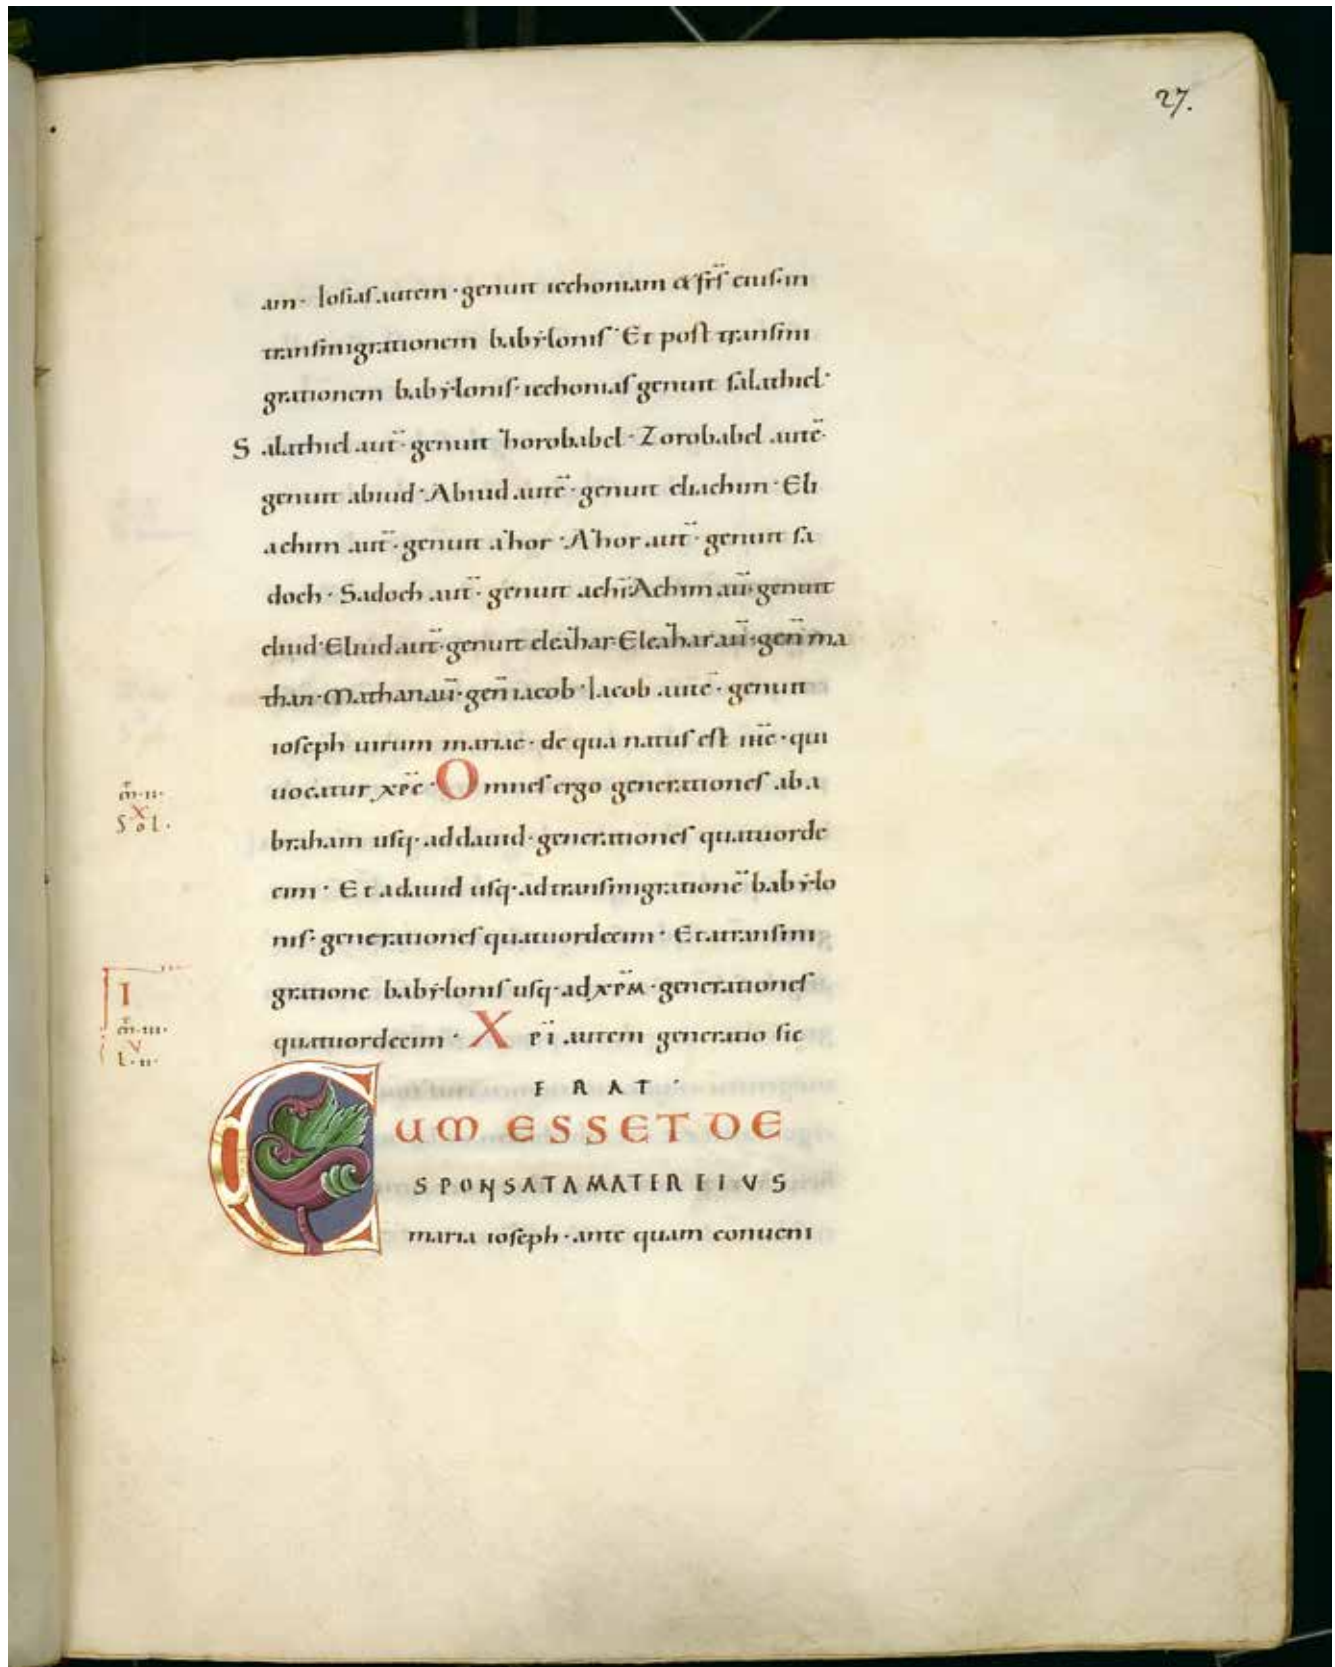 27.
am· Iosias autem· genuit iechoniam & frs̄ eius· in
transmigrationem babẏlonis· Et post transmi
grationem babẏlonis· iechonias genuit salathiel·
Salathiel aut̄· genuit zorobabel· Zorobabel autē·
genuit abiud· Abiud autē· genuit eliachim· Eli
achim aut̄· genuit azor· Azor aut̄· genuit sa
doch· Sadoch aut̄· genuit achī· Achim aū· genuit
eliud· Eliud aut̄· genuit eleazar· Eleazar aū· gen̄ ma
than· Mathan aū· gen̄ iacob· Iacob autē· genuit
ioseph uirum mariae· de qua natus est ih̄c· qui
uocatur xp̄c· Omnes ergo generationes ab a
braham usq· ad dauid· generationes quatuorde
cim· Et a dauid usq· ad transmigrationē babẏlo
nis· generationes quatuordecim· Et a transmi
gratione babẏlonis usq· ad xp̄m· generationes
quatuordecim· Xp̄i autem generatio sic
ERAT·
CUM ESSET DE
SPONSATA MATER EIVS
maria ioseph· ante quam conueni
m̄·II·
X
Sol·
I
m̄·III·
V
L·II·